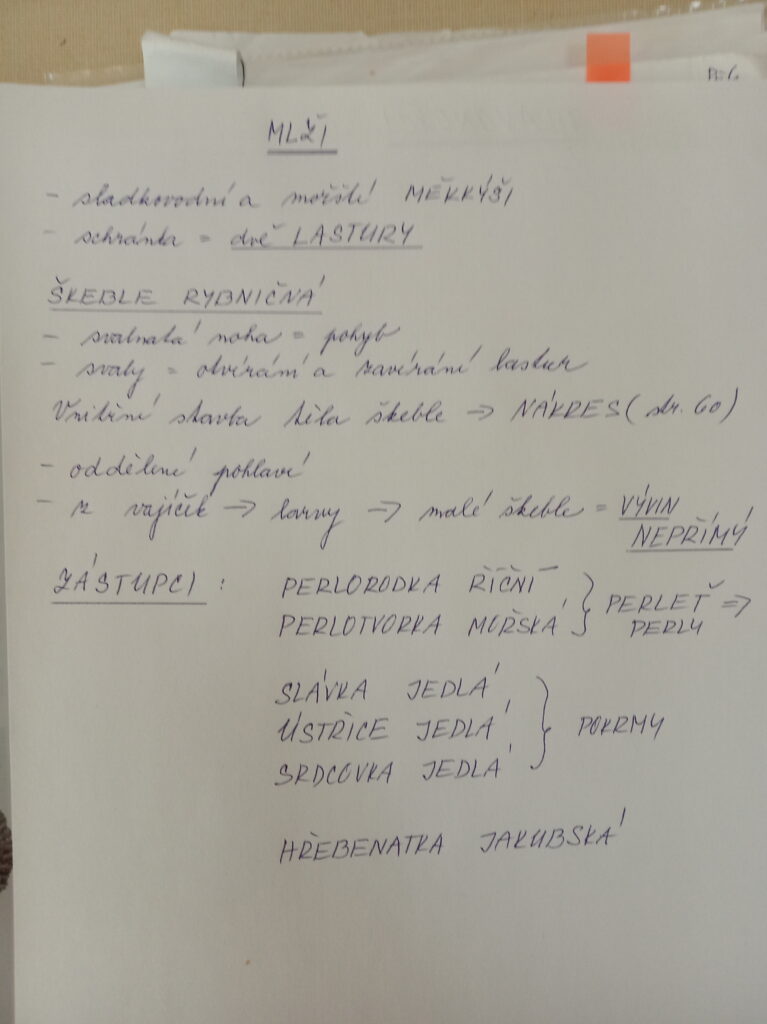 MLŽI
- sladkovodní a mořští MĚKKÝŠI
- schránka = dvě LASTURY
ŠKEBLE RYBNIČNÁ
- svalnatá noha = pohyb
- svaly = otvírání a zavírání lastur
Vnitřní stavba těla škeble → NÁKRES (str. 60)
- oddělené pohlaví
- z vajíček → larvy → malé škeble = VÝVIN
NEPŘÍMÝ
ZÁSTUPCI : PERLORODKA ŘÍČNÍ } PERLEŤ ⇒
PERLOTVORKA MOŘSKÁ } PERLY
SLÁVKA JEDLÁ
ÚSTŘICE JEDLÁ } POKRMY
SRDCOVKA JEDLÁ
HŘEBENATKA JAKUBSKÁ